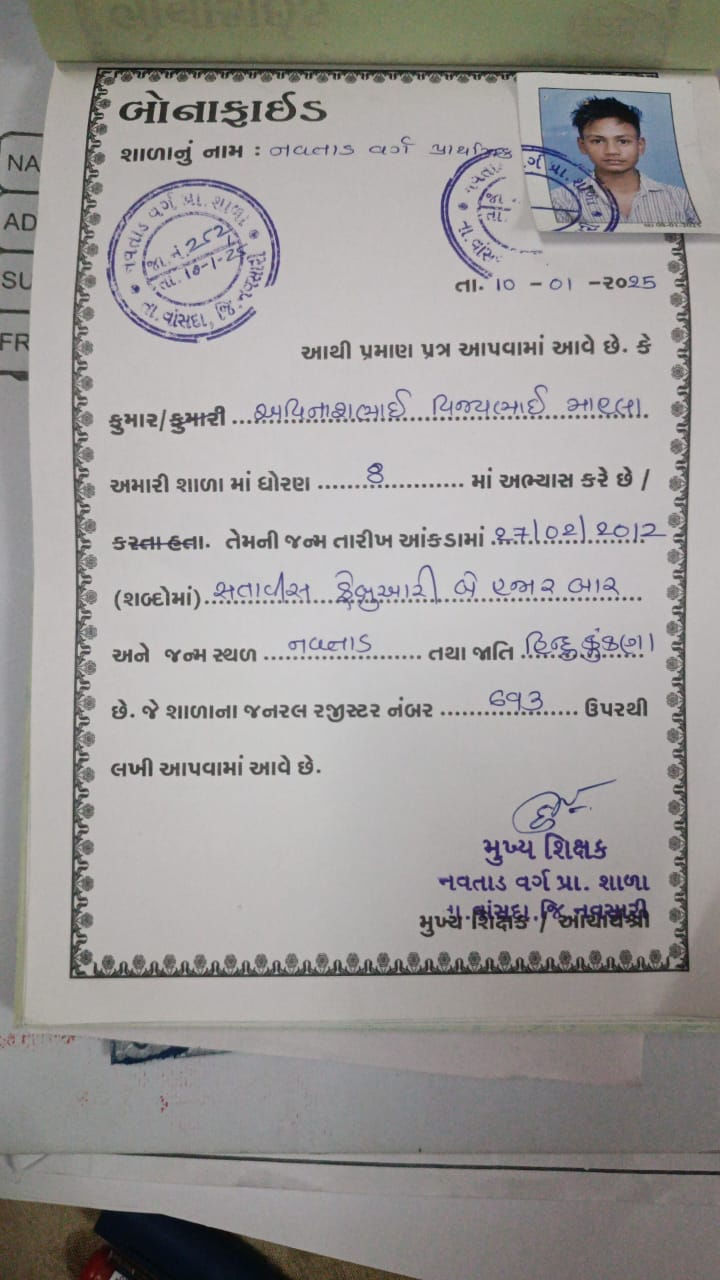 NA
AD
SU
FR
બોનાફાઈડ
શાળાનું નામ : નવતાડ વર્ગ પ્રાથમિક
નવતાડ વર્ગ પ્રા. શાળા
જા. નં. 252
તા. 10-1-25
તા. વાંસદા, જિ. નવસારી
ર્ગ પ્રા. શાળા
જા.
તા.
તા. વાંસ
તા. 10 - 01 - ૨૦25
આથી પ્રમાણ પત્ર આપવામાં આવે છે. કે
કુમાર/કુમારી અવિનાશભાઈ વિજયભાઈ
અમારી શાળા માં ધોરણ 8 માં અભ્યાસ કરે છે /
કરતા હતા. તેમની જન્મ તારીખ આંકડામાં ૨7/02/2012
(શબ્દોમાં) સતાવીસ ફેબ્રુઆરી બે હજાર બાર
અને જન્મ સ્થળ નવતાડ તથા જાતિ હિન્દુ કુંકણા
છે. જે શાળાના જનરલ રજીસ્ટર નંબર 693 ઉપરથી
લખી આપવામાં આવે છે.
મુખ્ય શિક્ષક
નવતાડ વર્ગ પ્રા. શાળા
વાંસદા, જિ. નવસારી
મુખ્ય શિક્ષક / આચાર્યશ્રી